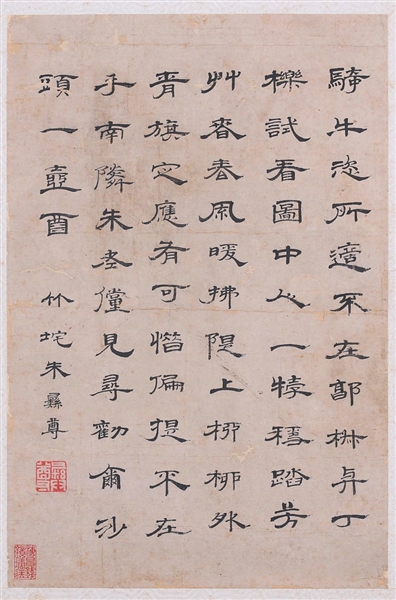 騎牛恣所適不在郭椒与丁
櫟試看圖中人一犢穩踏芳
艸香春風暖拂隄上栁栁外
青旗定應有可惜偏提不在
手南隣朱老儻見尋勸爾沙
頭一壺酉 竹垞朱彝尊